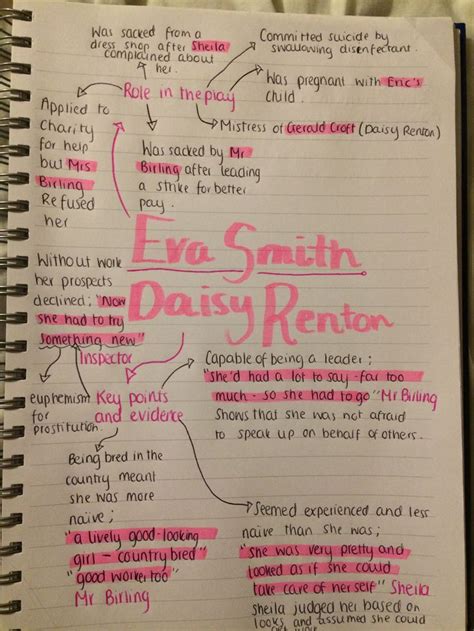 Was sacked from a
dress shop after Sheila
complained about
her.
Committed suicide by
swallowing disenfectant.
Was pregnant with Eric's
child.
Role in the play
Mistress of Gerald Croft (Daisy Renton)
Applied to
Charity
for help
but Mrs
Birling
Refused
her
Was sacked by Mr
Birling after leading
a strike for better
pay.
Eva Smith
Daisy Renton
Without work
her prospects
declined; "Now
she had to try
something new"
Inspector
euphemism
for
prostitution
Key points
and evidence
Capable of being a leader;
"she'd had a lot to say - far too
much - so she had to go" Mr Birling
Shows that she was not afraid
to speak up on behalf of others.
Being bred in the
country meant
she was more
naive;
"a lively good-looking
girl - country bred"
"good worker too"
Mr Birling
Seemed experienced and less
naive than she was;
"she was very pretty and
looked as if she could
take care of herself" Sheila
Sheila judged her based on
looks and assumed she could